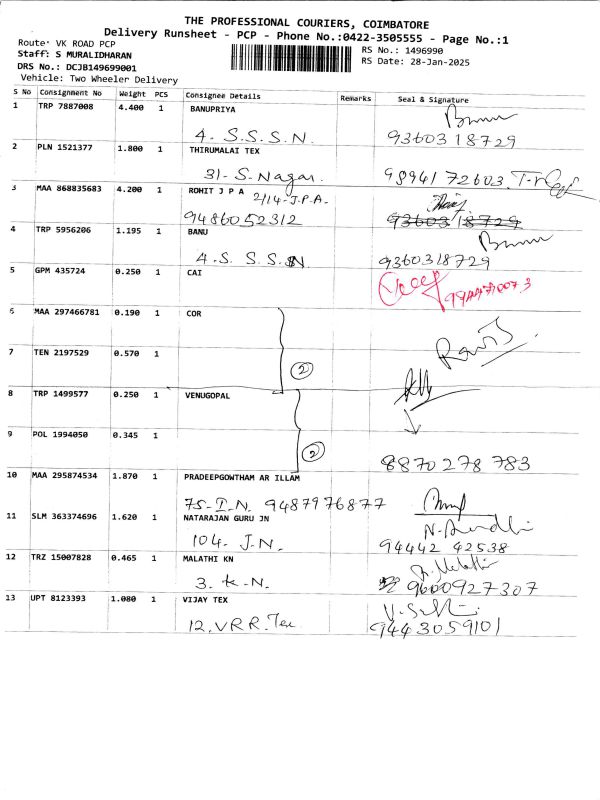 THE PROFESSIONAL COURIERS, COIMBATORE
Delivery Runsheet - PCP - Phone No.:0422-3505555 - Page No.:1
Route: VK ROAD PCP
Staff: S MURALIDHARAN
DRS No.: DCJB149699001
Vehicle: Two Wheeler Delivery
RS No.: 1496990
RS Date: 28-Jan-2025
S No Consignment No Weight PCS Consignee Details Remarks Seal & Signature
1 TRP 7887008 4.400 1 BANUPRIYA
4- S.S.S.N. 9360318729
2 PLN 1521377 1.800 1 THIRUMALAI TEX
31- S. Nagar. 9894172603
3 MAA 868835683 4.200 1 ROHIT J P A 2/14-J.P.A.
9486052312 9360318729
4 TRP 5956206 1.195 1 BANU
4.S. S.S.N 9360318729
5 GPM 435724 0.250 1 CAI
6 MAA 297466781 0.190 1 COR
7 TEN 2197529 0.570 1
2
8 TRP 1499577 0.250 1 VENUGOPAL
9 POL 1994050 0.345 1
2 8870278 783
10 MAA 295874534 1.870 1 PRADEEPGOWTHAM AR ILLAM
75-I.N. 9487976877
11 SLM 363374696 1.620 1 NATARAJAN GURU JN
104. J.N. 94442 42538
12 TRZ 15007828 0.465 1 MALATHI KN
3. K-N. 9600927307
13 UPT 8123393 1.080 1 VIJAY TEX
12, V.R.R. Tex 9443059101